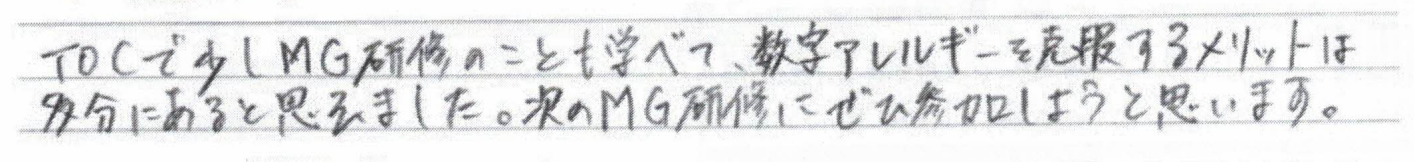 TOCで少しMG研修のことも学べて、数字アレルギーを克服するメリットは
多分にあると思えました。次のMG研修にぜひ参加しようと思います。